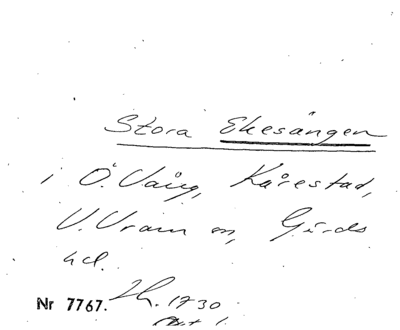 Stora Ekesången
i Ö. Vång, Kårestad,
V. Vram sn, Gärds
hd.
Nr 7767. Lh. 1730